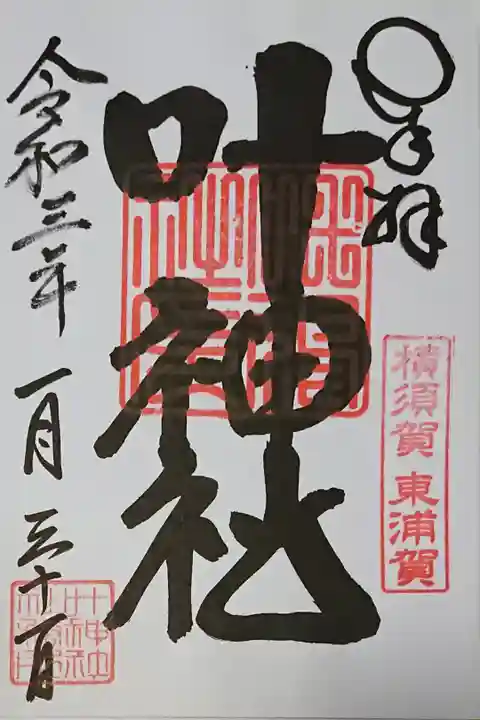 奉拝
横須賀 東浦賀
叶神社
令和三年 一月 三十一日
叶神社